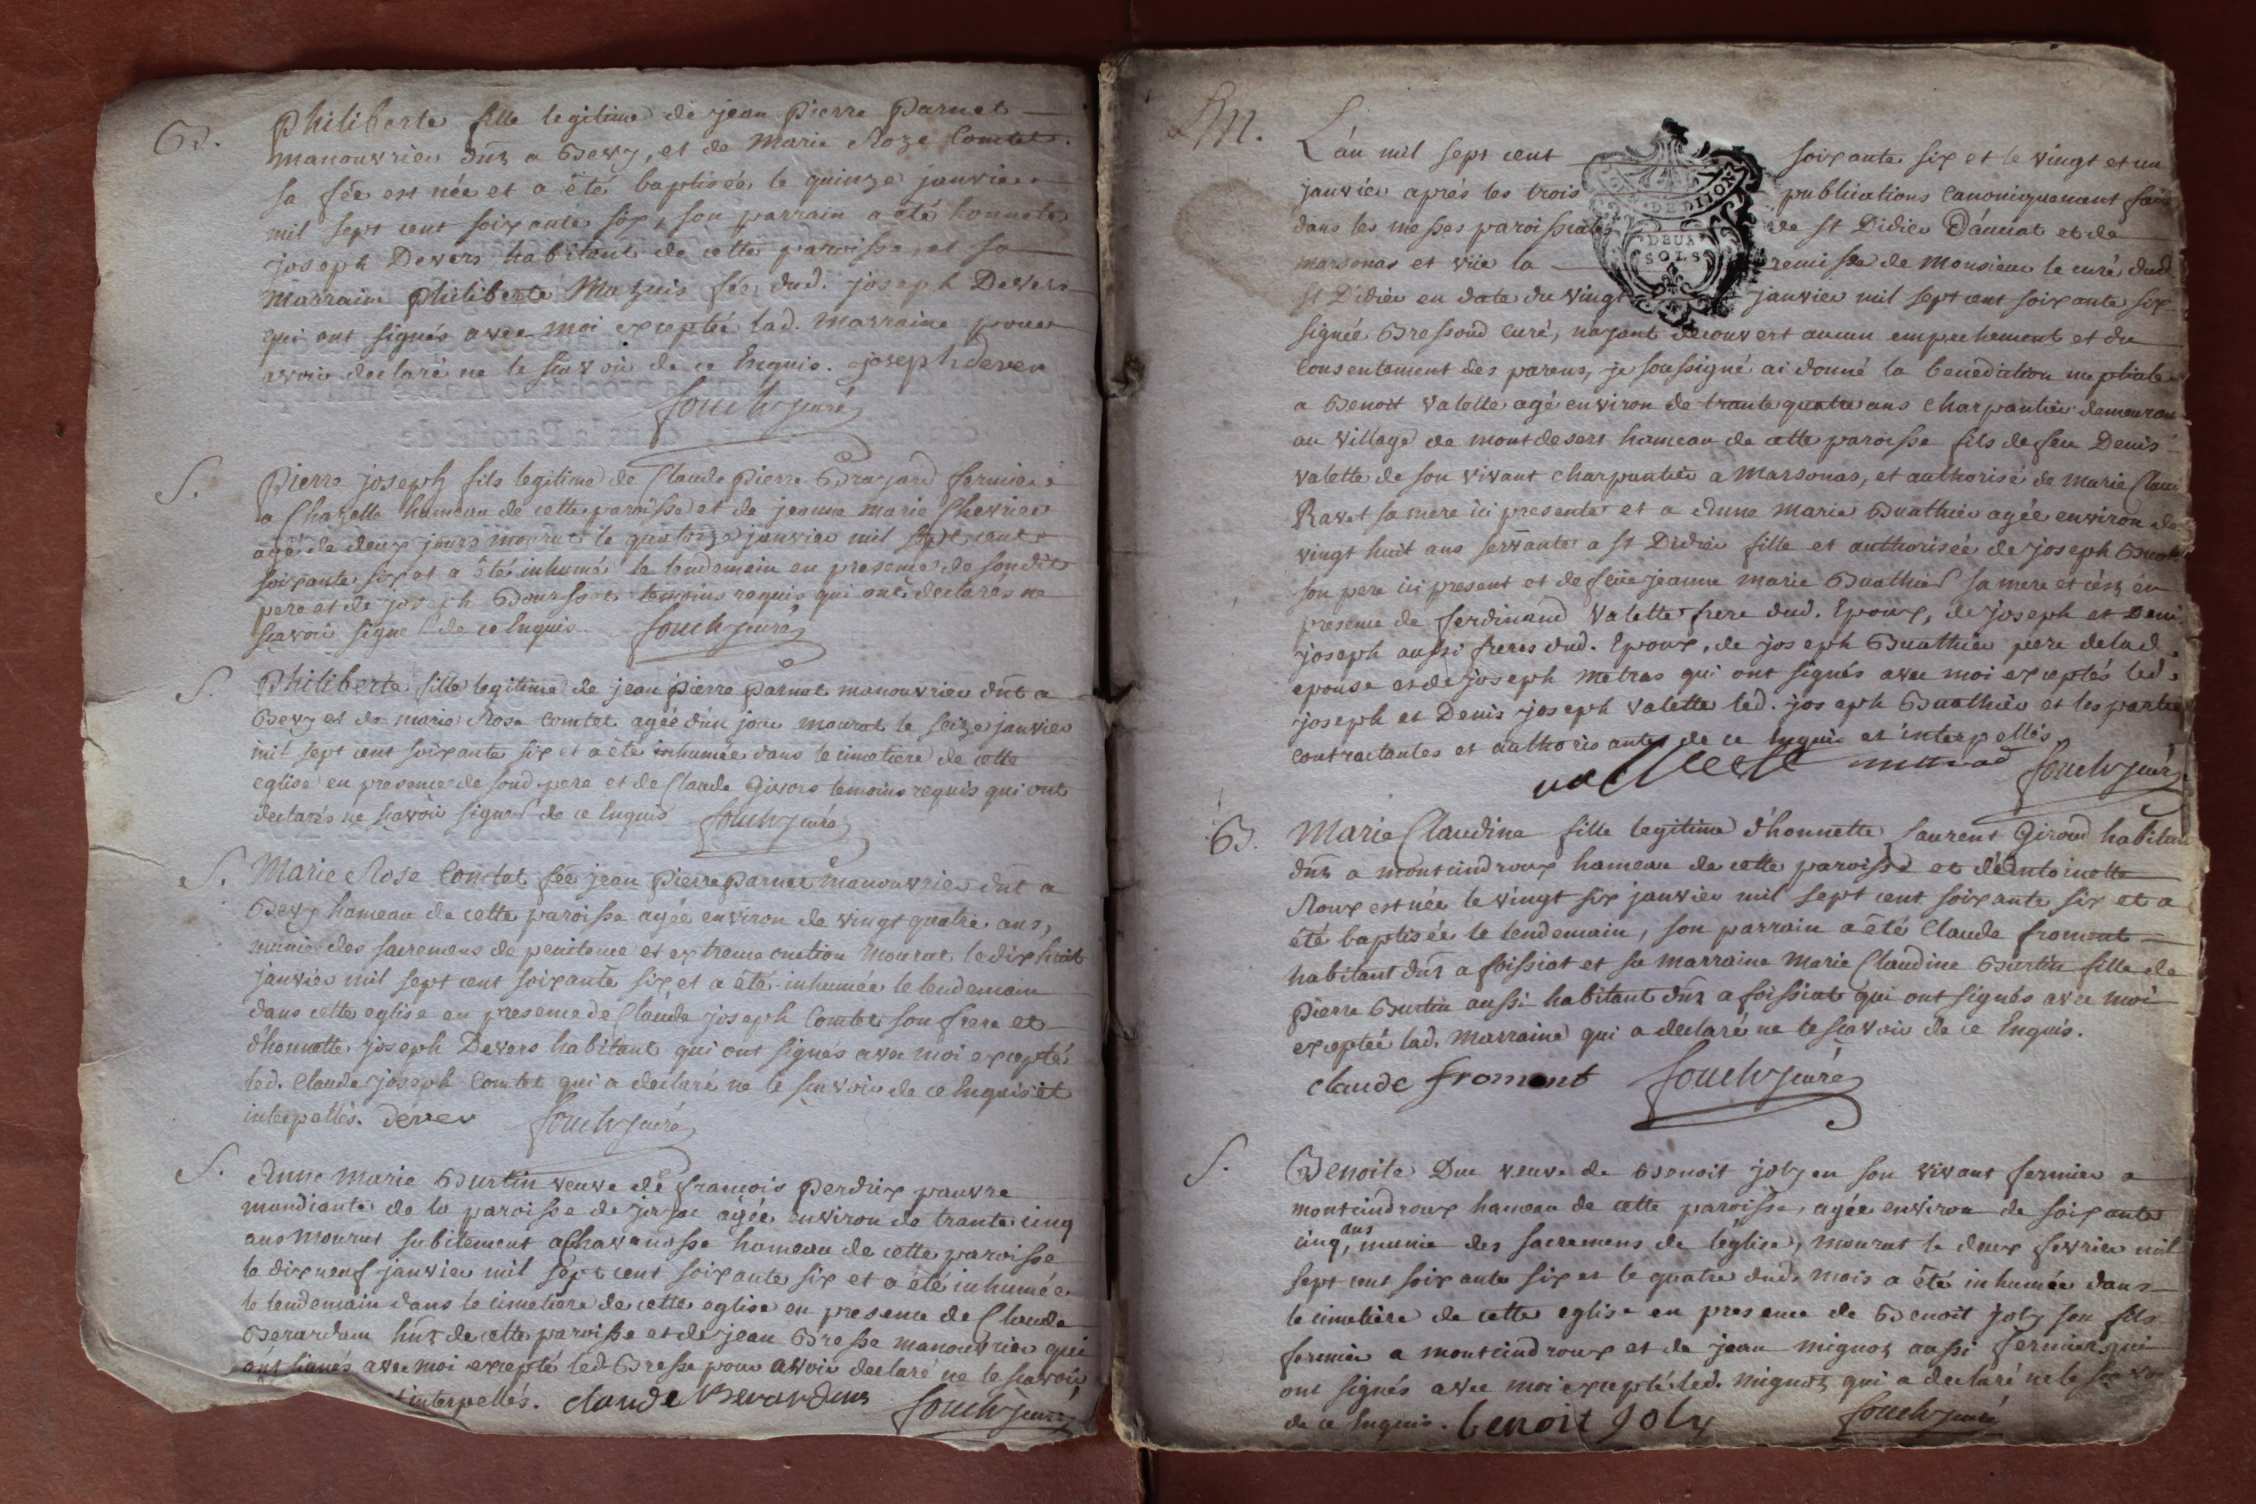 B.
Philiberte fille legitime de jean Pierre Parnet
manouvrier dnt a Bevy, et de Marie Roze Comtet
sa fée est née et a été baptisée le quinze janvier
mil sept cent soixante six, son parrain a été honnete
joseph Devers habitant de cette paroisse et sa
Marraine Philiberte Mazuis fée dud. joseph Devers
qui ont signés avec moi exceptée lad. Marraine pour
avoir declaré ne le sçavoir de ce Enquis. joseph dever
curé
S.
Pierre joseph fils legitime de Claude Pierre Brayard fermier
a Chazelle hameau de cette paroisse et de jeanne Marie Chevrier
agé de deux jours mourut le quatorze janvier mil sept cent
soixante six et a été inhumé le lendemain en presence de son dit
pere et de joseph Bourset temoins requis qui ont declarés ne
sçavoir signer de ce Enquis curé
S.
Philiberte fille legitime de jean pierre Parnet manouvrier dnt a
Bevy et de marie Rose Comtet agée d'un jour mourut le seize janvier
mil sept cent soixante six et a été inhumée dans le cimetiere de cette
eglise en presence de sond. pere et de Claude Givors temoins requis qui ont
declarés ne sçavoir signer de ce Enquis curé
S.
Marie Rose Comtet fée jean Pierre Parnet Manouvrier dnt a
Bevy hameau de cette paroisse agée environ de vingt quatre ans,
munie des sacremens de penitence et extreme onction mourut le dix huit
janvier mil sept cent soixante six et a été inhumée le lendemain
dans cette eglise en presence de Claude joseph Comtet son frere et
d'honnette joseph Devers habitant qui ont signés avec moi excepté
led. Claude joseph Comtet qui a declaré ne le sçavoir de ce Enquis et
interpellés. dever curé
S.
Anne Marie Burtin veuve de françois Perdrix pauvre
mandiante de la paroisse de jayac agée environ de trante cinq
ans mourut subitement a Chavanosse hameau de cette paroisse
le dix neuf janvier mil sept cent soixante six et a été inhumée
le lendemain dans le cimetiere de cette eglise en presence de Claude
Berardan hnt de cette paroisse et de jean Bresse manouvrier qui
ont signés avec moi excepté led. Bresse pour avoir declaré ne le sçavoir
et interpellés. claude Berardan curé
M.
L'an mil sept cent soixante six et le vingt et un
janvier apres les trois publications canoniquement fait
dans les messes paroissiales de St Didier D'aussiat et de
marsonas et vüe la remisse de Monsieur le curé dud.
St Didier en date du vingt janvier mil sept cent soixante six
signée Bressoud curé, n'ayant decouvert aucun empechement et du
Consentement des parens, je soussigné ai donné la benediction nuptiale
a Benoit Valette agé environ de trante quatre ans Charpantier demeurant
au village de montdesert hameau de cette paroisse fils de feu Denis
Valette de son vivant charpantier a Marsonas, et authorisé de Marie Claud
Ravet sa mere ici presente et a Anne Marie Buathier agée environ de
vingt huit ans servante a St Didier fille et authorisée de joseph Buath
son pere ici present et de feüe jeanne Marie Buathier sa mere et cën en
presence de ferdinand Valette frere dud. Epoux, de joseph et Denis
joseph aussi freres dud. Epoux, de joseph Buathier pere de lad.
epouse et de joseph Metras qui ont signés avec moi exceptés led.
joseph et Denis joseph Valette led. joseph Buathier et les parties
contractantes et authorisantes de ce Enquis et interpellés
curé
GEN. DE DIJON
DEUX
SOLS
B.
Marie Claudine fille legitime d'honnette Laurent Giroud habitan
dnt a montcindroux hameau de cette paroisse et d'Antoinette
Roux est née le vingt six janvier mil sept cent soixante six et a
été baptisée le lendemain, son parrain a été Claude froment
habitant dnt a foissiat et sa Marraine Marie Claudine Burtin fille de
Pierre Burtin aussi habitant dnt a foissiat qui ont signés avec moi
exceptée lad. Marraine qui a declaré ne le sçavoir de ce Enquis.
claude froment curé
S.
Benoite Duc veuve de Benoit joly en son vivant fermier a
montcindroux hameau de cette paroisse, agée environ de soixante
cinq ans, munie des sacremens de l'église, mourut le deux fevrier mil
sept cent soixante six et le quatre dud. mois a été inhumée dans
le cimetière de cette eglise en presence de Benoit joly son fils
fermier a montcindroux et de jean mignot aussi fermier qui
ont signés avec moi excepté led. mignot qui a declaré ne le sçavoir
de ce Enquis. benoit joly curé